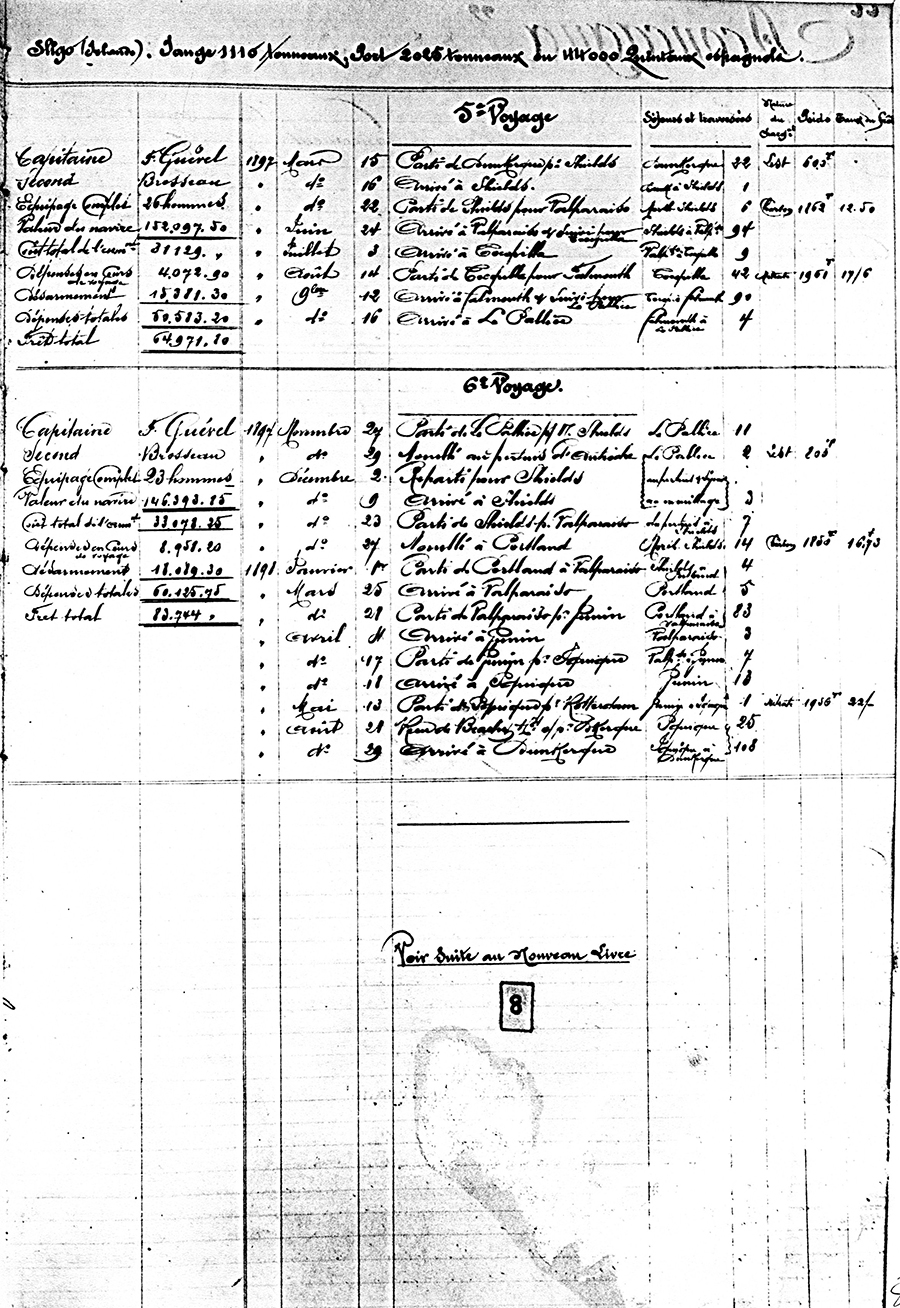 33
Sligo (Irlande). Jauge 1110 tonneaux, Port 2025 tonneaux ou 44000 Quintaux espagnols.
5e Voyage Séjours et traversées Nature du Poids Taux du
Capitaine F. Guérel 1897 Mars 15 Parti de Dunkerque pr Shields Dunkerque 22 Lest 603T
Second Brosseau " do 16 Arrivé à Shields. Dunkq à Shields 1
Equipage Complet 26 hommes " do 22 Parti de Shields pour Valparaiso North Shields 6 Charbon 1862T 12.50
Valeur du navire 152.097.50 " Juin 24 Arrivé à Valparaiso & Shields à Valpso 94
Coût total de l'arm 31129. " " Juillet 3 Arrivé à Tocopilla Valpso à Tocopilla 9
Dépenses en Cours de voyage 4.072.90 " Août 14 Parti de Tocopilla pour Falmouth Tocopilla 42 Nitrate 1961T 17/6
Désarmement 15.381.30 " 9bre 12 Arrivé à Falmouth & La Pallice à Falmouth 90
Dépenses totales 50.583.20 " do 16 Arrivé à La Pallice Falmouth à La Pallice 4
Fret total 64.971.80
6e Voyage.
Capitaine F. Guérel 1897 Novembre 27 Parti de La Pallice pr N. Shields La Pallice 11
Second Brosseau " do 29 Mouillé au pertuis d'Antioche La Pallice 2 Lest 205T
Equipage Complet 23 hommes " Décembre 2 Reparti pour Shields
Valeur du navire 146.393.85 " do 9 Arrivé à Shields au mouillage 3
Coût total de l'armt 33.078.25 " do 23 Parti de Shields pr Valparaiso à Shields 7
Dépenses en Cours de voyage 8.958.20 " do 27 Mouillé à Portland North Shields 14 Charbon 1855T 16.93
Désarmement 18.089.30 1898 Janvier 1er Parti de Portland à Valparaiso Shields Portland 4
Dépenses totales 60.125.75 " Mars 25 Arrivé à Valparaiso Portland 5
Fret total 83.744 " " do 28 Parti de Valparaiso pr Junin Portland à Valparaiso 83
" Avril 4 Arrivé à Junin Valparaiso 3
" do 17 Parti de Junin pr Iquique Valpso à Junin 7
" do 18 Arrivé à Iquique Junin 13
" Mai 13 Parti d'Iquique pr Rotterdam Junin à Iquique 1 Nitrate 1956T 22/-
" Août 28 Iquique 25
" do 29 Arrivé à Dunkerque Iquique à Dunkerque 108
Voir Suite au Nouveau Livre
8